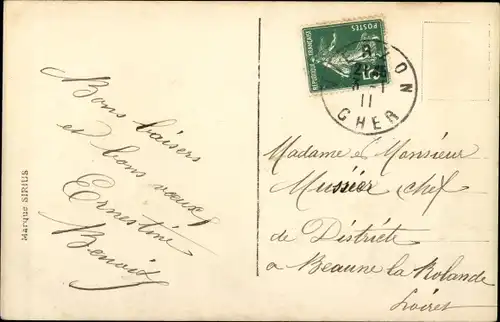 Bons baisers
et bons voeux
Ernestine
Benoit
Marque SIRIUS
REPUBLIQUE FRANÇAISE
POSTES
5
11
CHER
Madame & Monsieur
Mussier chef
de Districte
a Beaune la Rolande
Loiret